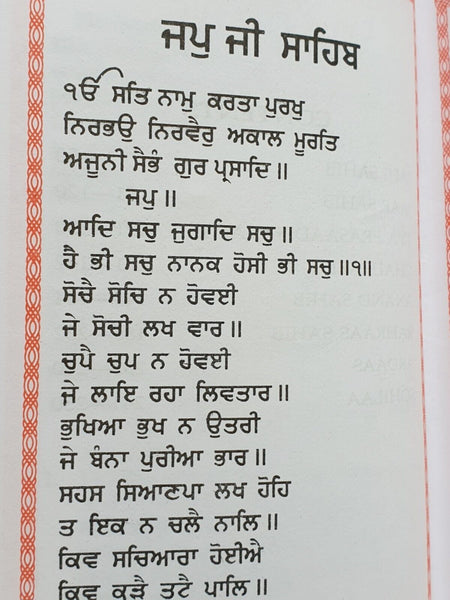 ਜਪੁ ਜੀ ਸਾਹਿਬ
ੴ ਸਤਿ ਨਾਮੁ ਕਰਤਾ ਪੁਰਖੁ
ਨਿਰਭਉ ਨਿਰਵੈਰੁ ਅਕਾਲ ਮੂਰਤਿ
ਅਜੂਨੀ ਸੈਭੰ ਗੁਰ ਪ੍ਰਸਾਦਿ॥
ਜਪੁ॥
ਆਦਿ ਸਚੁ ਜੁਗਾਦਿ ਸਚੁ॥
ਹੈ ਭੀ ਸਚੁ ਨਾਨਕ ਹੋਸੀ ਭੀ ਸਚੁ॥੧॥
ਸੋਚੈ ਸੋਚਿ ਨ ਹੋਵਈ
ਜੇ ਸੋਚੀ ਲਖ ਵਾਰ॥
ਚੁਪੈ ਚੁਪ ਨ ਹੋਵਈ
ਜੇ ਲਾਇ ਰਹਾ ਲਿਵਤਾਰ॥
ਭੁਖਿਆ ਭੁਖ ਨ ਉਤਰੀ
ਜੇ ਬੰਨਾ ਪੁਰੀਆ ਭਾਰ॥
ਸਹਸ ਸਿਆਣਪਾ ਲਖ ਹੋਹਿ
ਤ ਇਕ ਨ ਚਲੈ ਨਾਲਿ॥
ਕਿਵ ਸਚਿਆਰਾ ਹੋਈਐ
ਕਿਵ ਕੂੜੈ ਤੁਟੈ ਪਾਲਿ॥